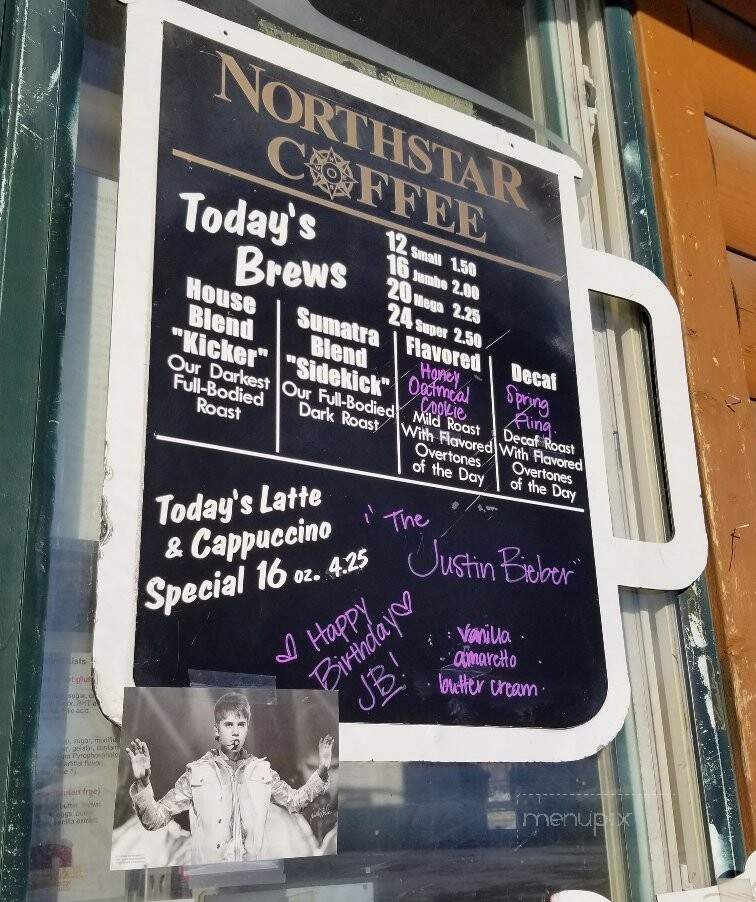 NORTHSTAR
COFFEE
Today's
Brews
12 Small 1.50
16 Jumbo 2.00
20 Mega 2.25
24 Super 2.50
House
Blend
"Kicker"
Our Darkest
Full-Bodied
Roast
Sumatra
Blend
"Sidekick"
Our Full-Bodied
Dark Roast
Flavored
Honey
Oatmeal
Cookie
Mild Roast
With Flavored
Overtones
of the Day
Decaf
Spring
Fling
Decaf Roast
With Flavored
Overtones
of the Day
Today's Latte
& Cappuccino
Special 16 oz. 4.25
"The
Justin Bieber"
Happy
Birthday
JB!
· Vanilla ·
· amaretto
· butter cream ·
menupix